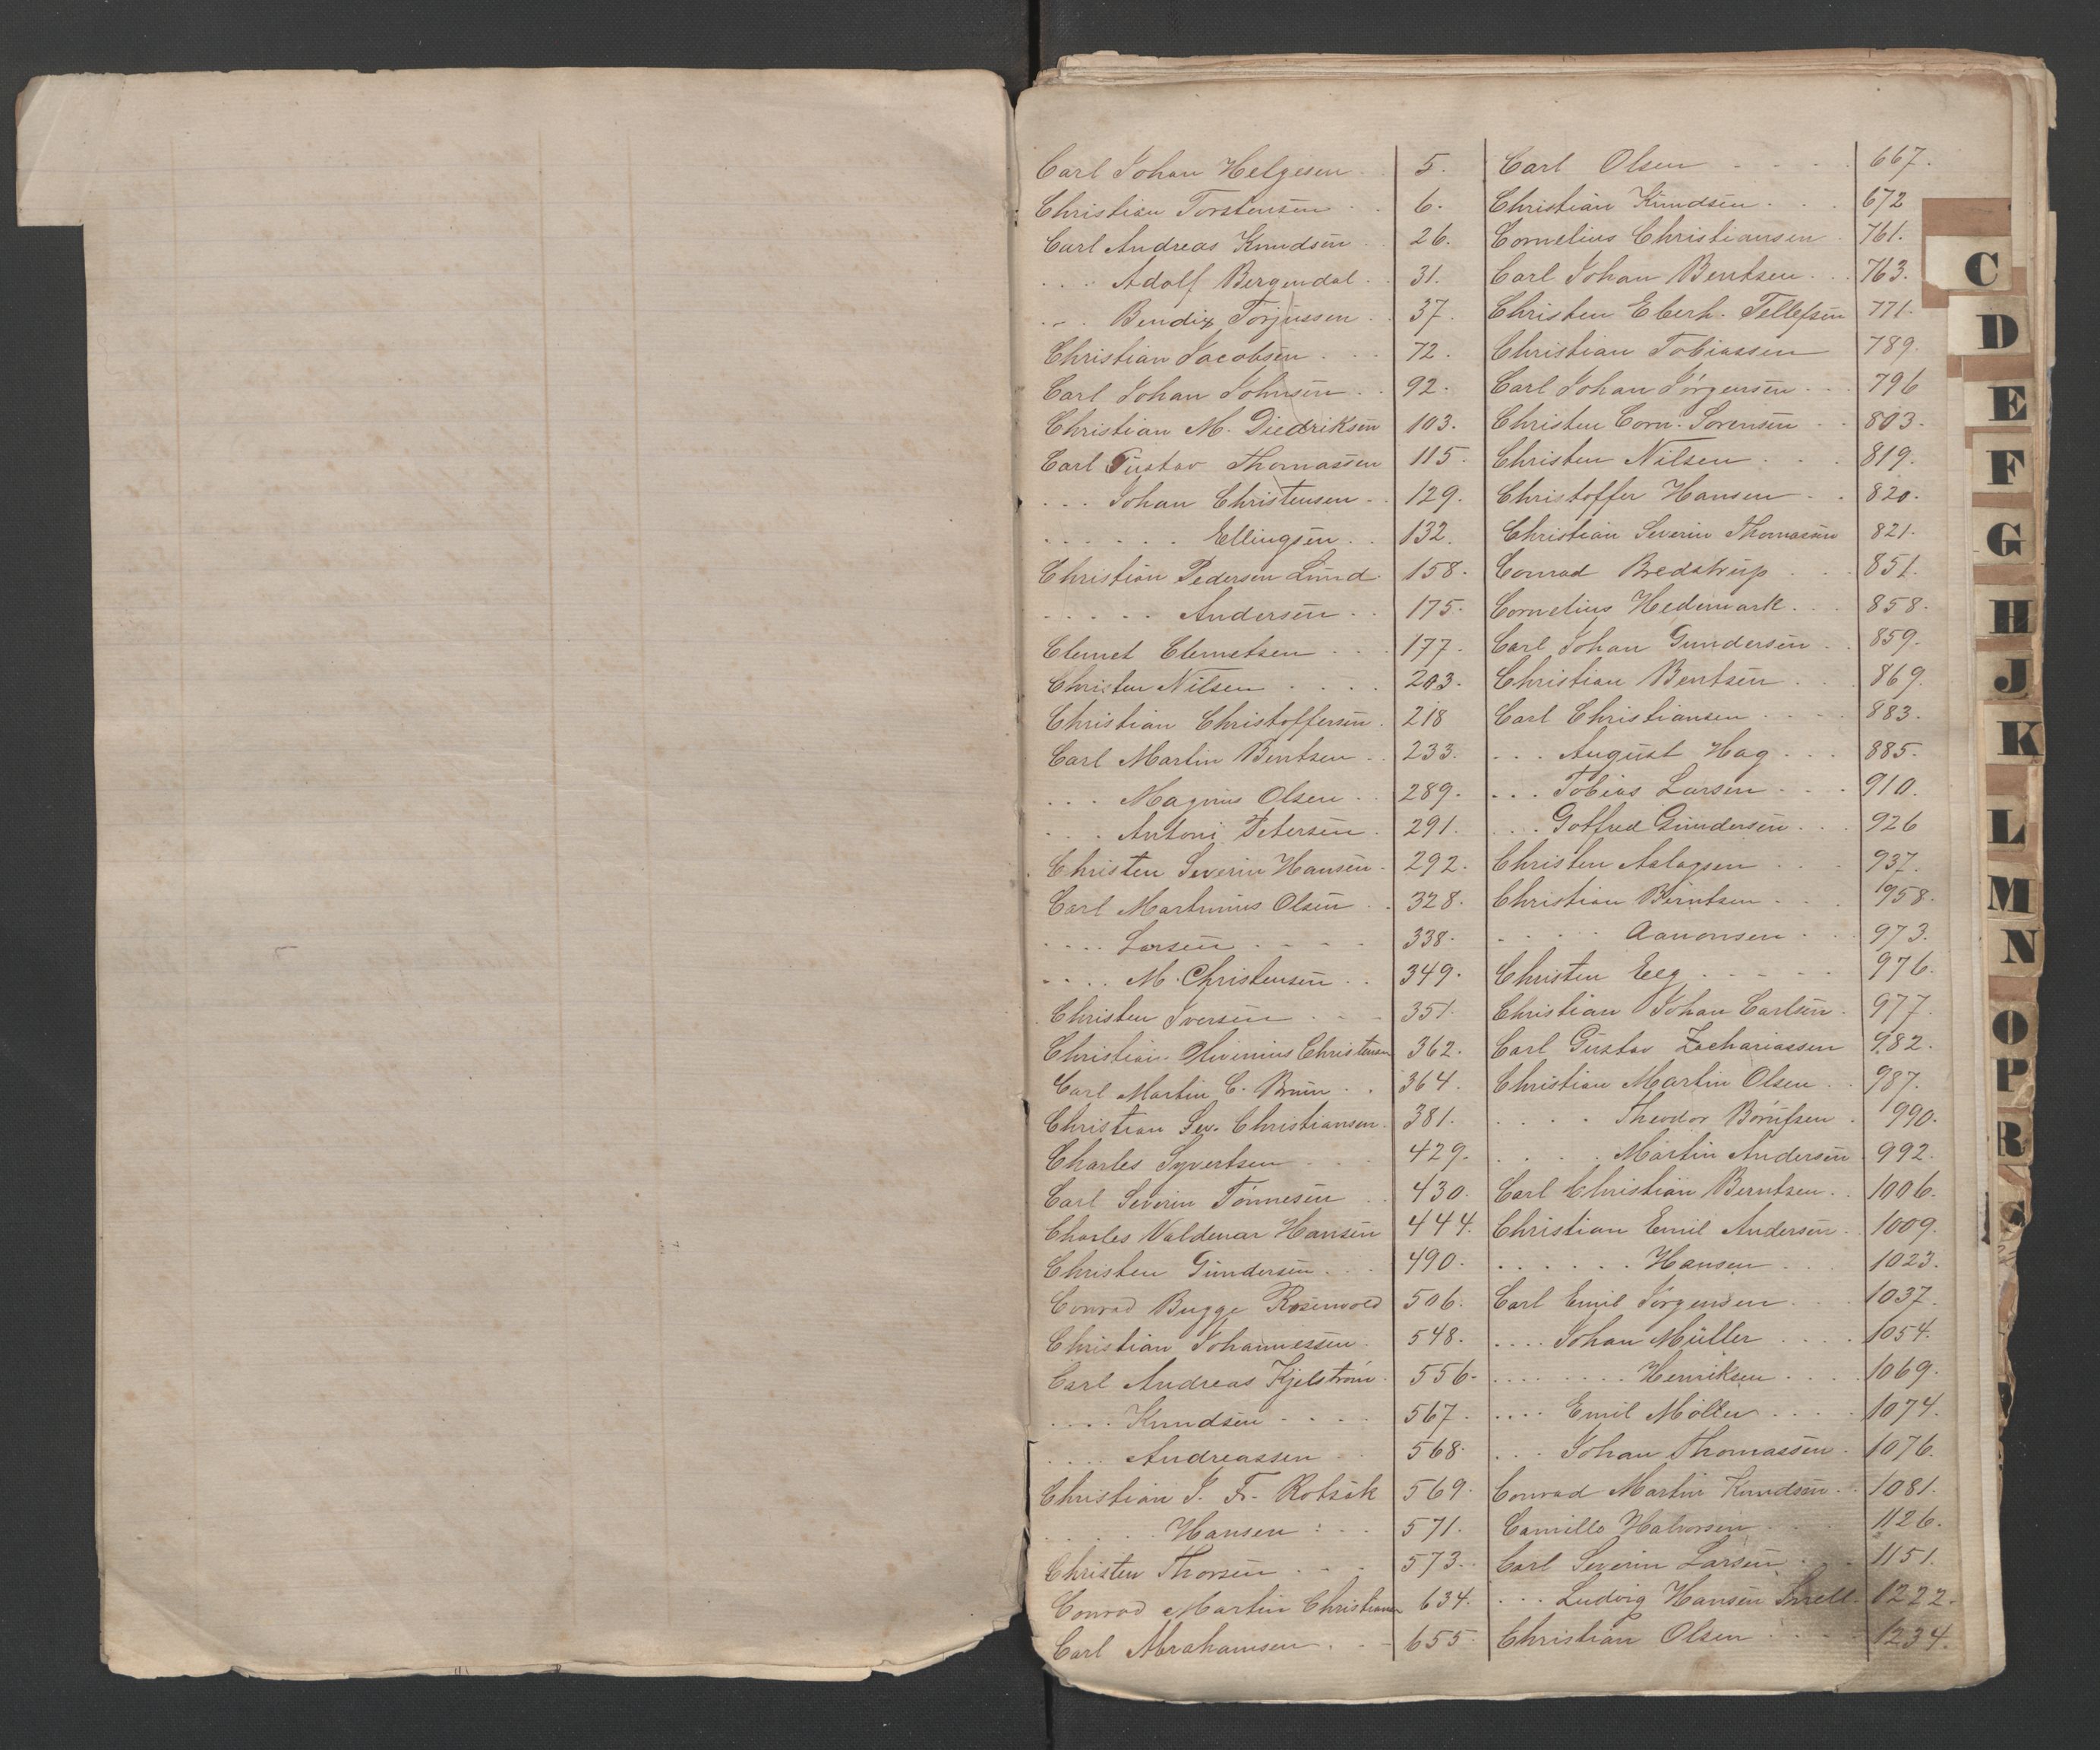 Carl Johan Helgesen . . 5.
Christian Torstensen . . 6.
Carl Andreas Knudsen . . 26.
. . . . Adolf Bergendal . . 31.
. . . Bendix Torjussen . . 37.
Christian Jacobsen . . . 72.
Carl Johan Johnsen . . 92.
Christian M. Diedriksen 103.
Carl Gustav Thomassen 115.
. . . Johan Christensen . . 129.
. . . . . . Ellingsen . . 132.
Christian Pedersen Lund . 158.
. . . . . Andersen . . 175.
Clemet Clemetsen . . . 177.
Christen Nilsen . . . . 203.
Christian Christoffersen . 218
Carl Martin Bentsen . . 233.
. . . Magnus Olsen . . 289.
. . . Antoni Petersen . 291.
Christen Severin Hansen . 292.
Carl Martinius Olsen . . 328.
. . . . Larsen . . . . 338.
. . . . M. Christensen . . 349.
Christen Iversen . . . 351.
Christian Christensen 362.
Carl Martin C. Bruun . . 364.
Christian Sev. Christiansen . 381.
Charles Syvertsen . . . 429.
Carl Severin Tönnesen . . 430.
Charles Valdemar Hansen 444.
Christen Gundersen . . . 490.
Conrad Bugge Rosenvold 506.
Christian Johannessen . 548.
Carl Andreas Kjelström . 556.
. . . . Knudsen . . . . 567.
. . . . Andreassen . . 568.
Christian J. Fr. Rotsak 569.
. . . . . Hansen . . . 571.
Christen Thorsen . . . 573.
Conrad Martin Christiansen 634.
Carl Abrahamsen . . . 655.
Carl Olsen . . . . 667.
Christian Knudsen . . . 672
Cornelius Christiansen . 761.
Carl Johan Berntsen . . . 763.
Christen Eberh. Tellefsen 771.
Christian Tobiassen 789.
Carl Johan Jörgensen . . . 796
Christen Corn. Sorensen . . 803.
Christen Nilsen . . . 819.
Christoffer Hansen . . 820.
Christian Severin Thomassen 821.
Conrad Bredstrup . . . 851.
Cornelius Hedemark . . . 858.
Carl Johan Gundersen . . 859.
Christian Bentsen . . . 869.
Carl Christiansen . . . . 883.
. . . August Hag . . . 885.
. . . Tobias Larsen . . . 910.
. . . Gotfred Gundersen . . . 926
Christen Aslagsen . . . 937.
Christian Berntsen . . . 958.
. . . . . Aanonsen . . . 973.
Christen Eeg . . . . . 976.
Christian Johan Carlsen . 977.
Carl Gustav Zachariassen 982.
Christian Martin Olsen . . 987.
. . . . Theodor Börufsen . 990.
. . . . Martin Andersen 992.
Carl Christian Berntsen . . 1006.
Christian Emil Andersen . 1009.
. . . . . . Hansen . . . 1023.
Carl Emil Jörgensen . . . 1037.
. . . . Johan Müller . . . . 1054.
. . . . . . . . Henriksen . . . . 1069.
. . . . Emil Möller . . . . 1074.
. . . Johan Thomassen . 1076.
Conrad Martin Knudsen . . 1081.
Camillo Halvorsen . . . 1126.
Carl Severin Larsen . . . 1151.
. . . Ludvig Hansen . 1222.
Christian Olsen . . . . 1234.
C
D
E
F
G
H
J
K
L
M
N
O
P
R
S